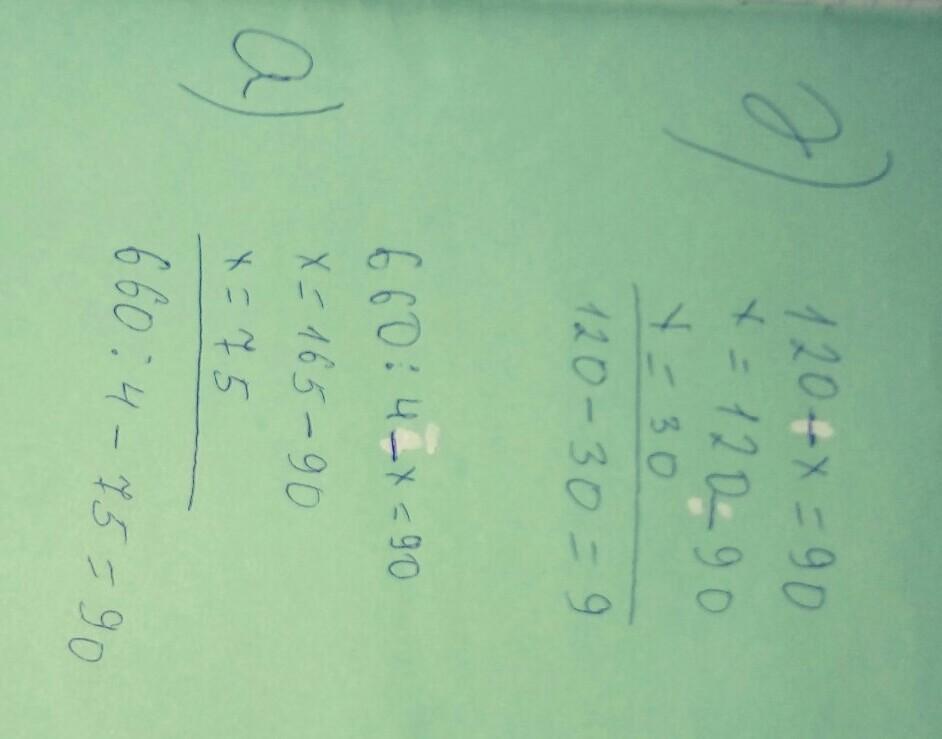 д)
120 - x = 90
x = 120 - 90
x = 30
120 - 30 = 9
а)
660 : 4 - x = 90
x = 165 - 90
x = 75
660 : 4 - 75 = 90